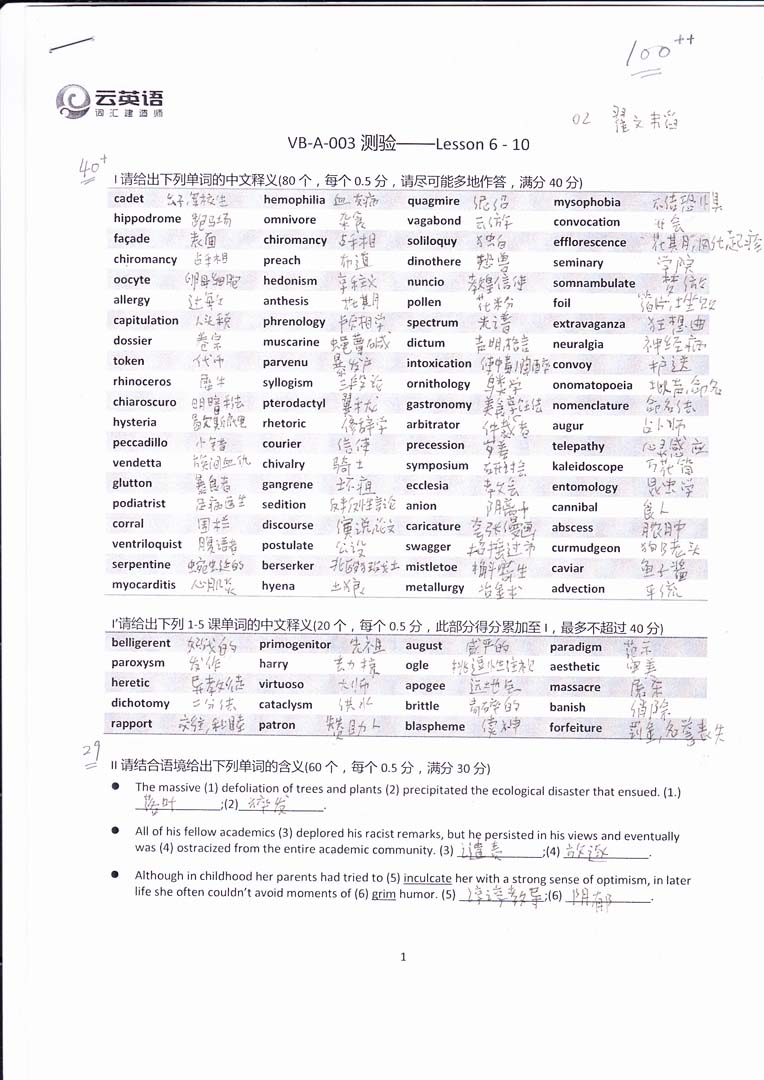 100++
云英语
词汇建造师
02 翟文韬
VB-A-003 测验——Lesson 6 - 10
40+
I 请给出下列单词的中文释义(80 个，每个 0.5 分，请尽可能多地作答，满分 40 分)
cadet hemophilia 血友病 quagmire mysophobia
hippodrome 跑马场 omnivore 杂食 vagabond 云游 convocation
façade 表面 chiromancy 占手相 soliloquy 独白 efflorescence 花期,风化起疹
chiromancy 占手相 preach 布道 dinothere 恐兽 seminary 学院
oocyte 卵母细胞 hedonism 享乐主义 nuncio 教皇信使 somnambulate 梦
allergy anthesis 花期 pollen 花粉 foil 箔片,
capitulation 人头税 phrenology 颅相学 spectrum 光谱 extravaganza 狂想曲
dossier 卷宗 muscarine 蝇蕈碱 dictum 声明,格言 neuralgia 神经病
token 代币 parvenu 暴发户 intoxication convoy 护送
rhinoceros 犀牛 syllogism 三段论 ornithology 鸟类学 onomatopoeia 拟声,命名
chiaroscuro 明暗法 pterodactyl 翼龙 gastronomy 美食烹饪法 nomenclature 命名法
hysteria 歇斯底里 rhetoric 修辞学 arbitrator 仲裁者 augur 占卜师
peccadillo 小错 courier 信使 precession 岁差 telepathy 心灵感应
vendetta 族间血仇 chivalry 骑士 symposium 研讨会 kaleidoscope 万花筒
glutton 暴食者 gangrene 坏疽 ecclesia 教会 entomology 昆虫学
podiatrist 足病医生 sedition 反叛性言论 anion 阴离子 cannibal 食人
corral 围栏 discourse 演说,论文 caricature 夸张漫画 abscess 脓肿
ventriloquist 腹语者 postulate 公设 swagger 招摇过市 curmudgeon 老头
serpentine 蜿蜒的 berserker 北欧狂战士 mistletoe 槲寄生 caviar 鱼子酱
myocarditis 心肌炎 hyena 土狼 metallurgy 冶金术 advection 平流
I'请给出下列 1-5 课单词的中文释义(20 个，每个 0.5 分，此部分得分累加至 I，最多不超过 40 分)
belligerent 好战的 primogenitor 先祖 august 威严的 paradigm 范示
paroxysm 发作 harry ogle 挑逗性注视 aesthetic 审美
heretic 异教徒 virtuoso 大师 apogee 远地点 massacre 屠杀
dichotomy 二分法 cataclysm 洪水 brittle 易碎的 banish 消除
rapport 交往,和睦 patron 赞助人 blaspheme 渎神 forfeiture 罚金,名誉丧失
29
II 请结合语境给出下列单词的含义(60 个，每个 0.5 分，满分 30 分)
● The massive (1) defoliation of trees and plants (2) precipitated the ecological disaster that ensued. (1.)
落叶;(2) 猝发.
● All of his fellow academics (3) deplored his racist remarks, but he persisted in his views and eventually
was (4) ostracized from the entire academic community. (3) 谴责;(4) 放逐.
● Although in childhood her parents had tried to (5) inculcate her with a strong sense of optimism, in later
life she often couldn't avoid moments of (6) grim humor. (5) 谆谆教导;(6) 阴郁.
1